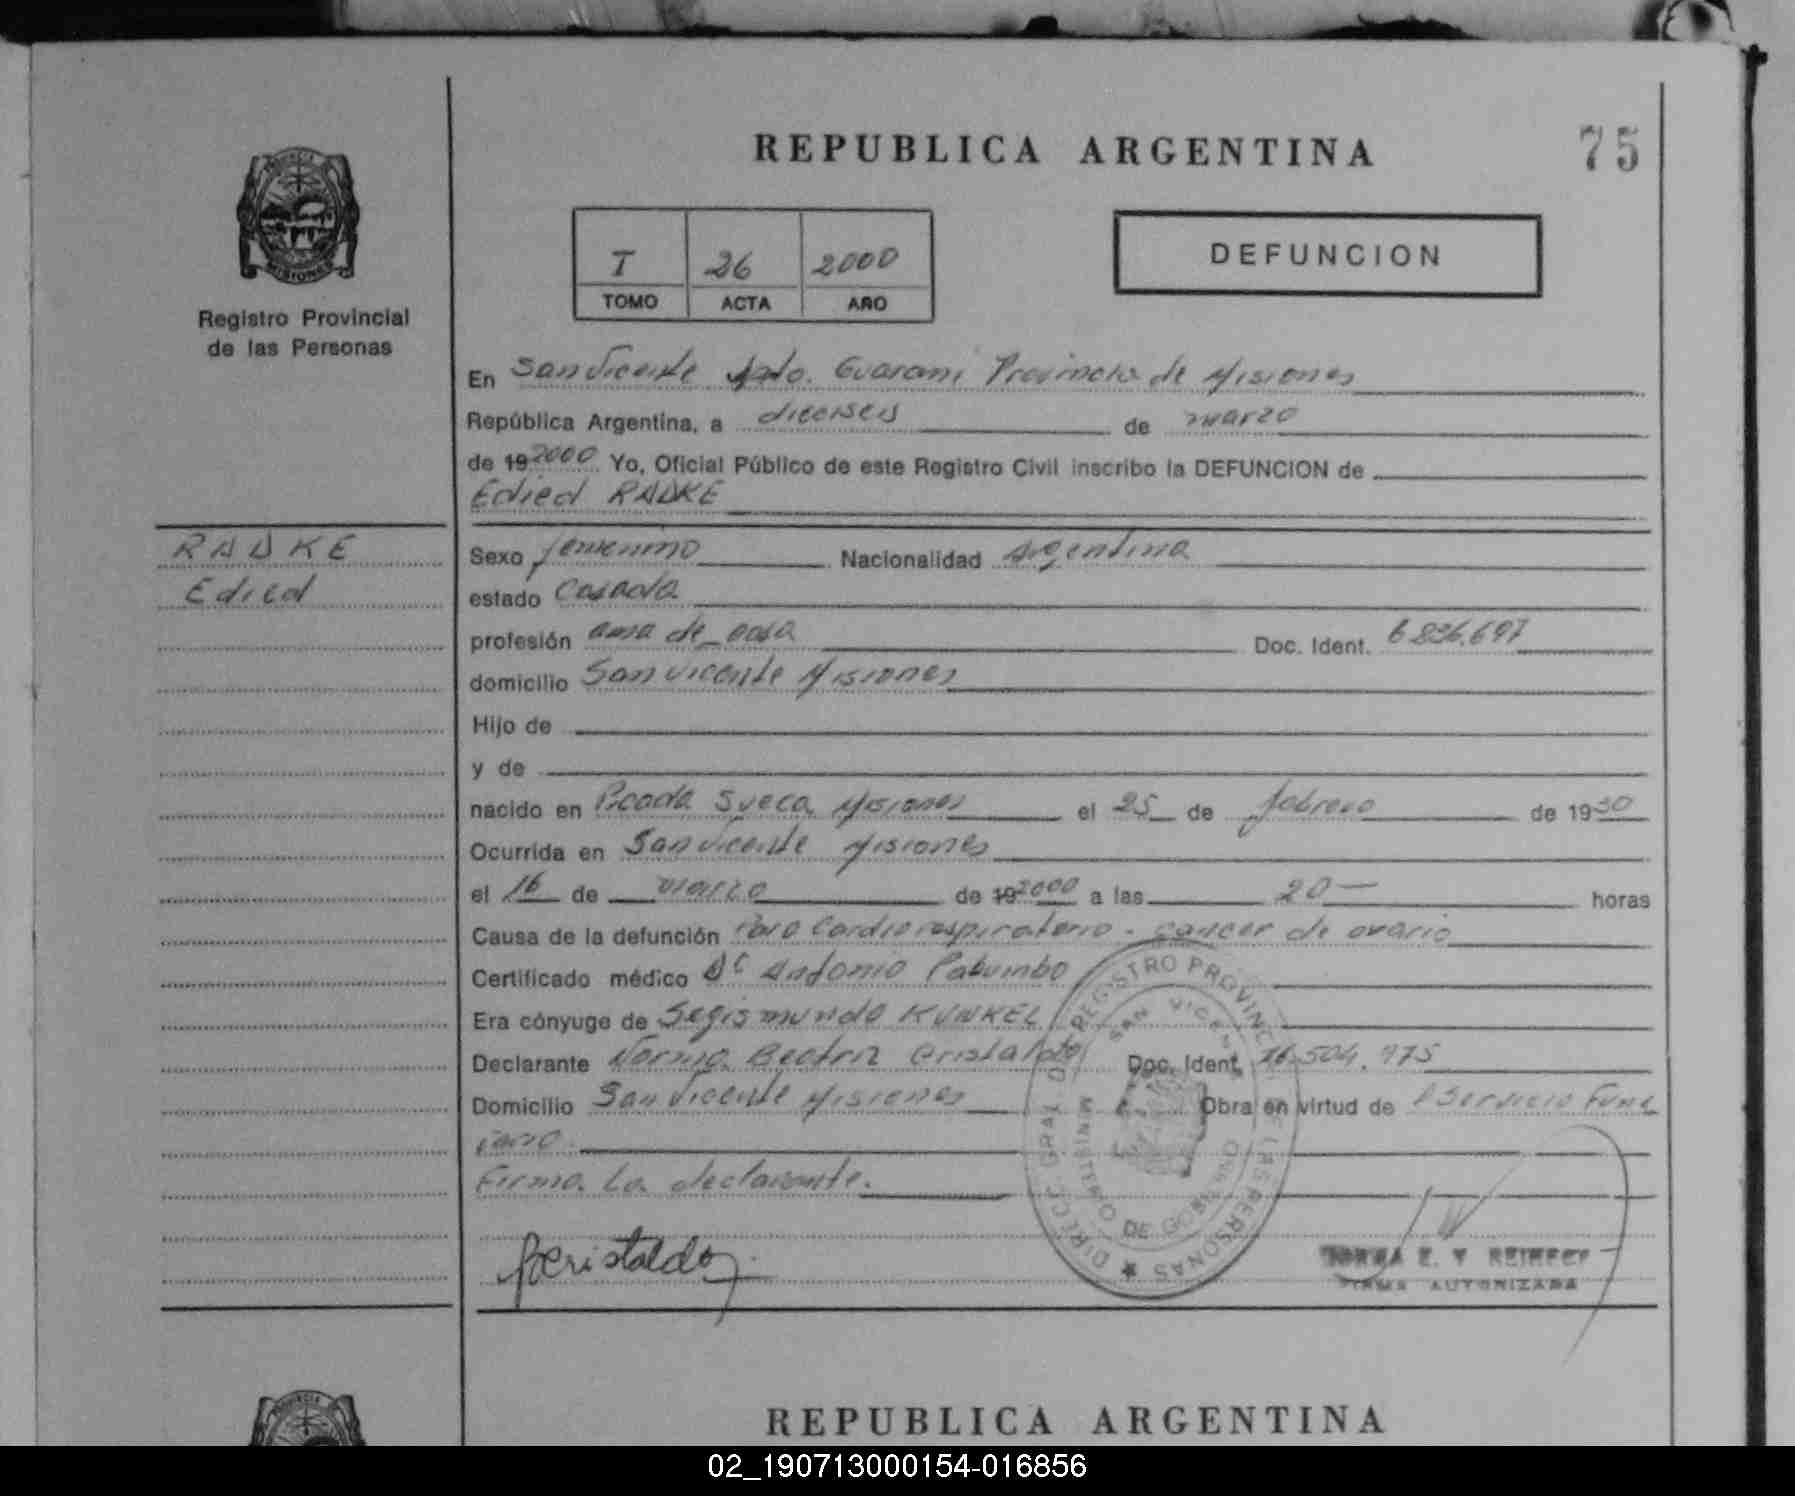 REPUBLICA ARGENTINA
75
PROVINCIA DE
MISIONES
Registro Provincial
de las Personas
T 26 2000
TOMO ACTA AÑO
DEFUNCION
En San Vicente Dpto. Guarani Provincia de Misiones
República Argentina, a dieciseis de marzo
de 19 2000 Yo, Oficial Público de este Registro Civil inscribo la DEFUNCION de
Edied RADKE
RADKE
Edied
Sexo femenino Nacionalidad argentina
estado Casada
profesión ama de casa Doc. Ident. 6.836.697
domicilio San Vicente Misiones
Hijo de
y de
nacido en Picada Sueca Misiones el 25 de febrero de 1930
Ocurrida en San Vicente Misiones
el 16 de marzo de 19 2000 a las 20 — horas
Causa de la defunción Paro Cardiorespiratorio - cancer de ovario
Certificado médico Dr Antonio
Era cónyuge de Segismundo KUNKEL
Declarante Norma Beatriz Cristaldo Doc. Ident. 16.504.975
Domicilio San Vicente Misiones Obra en virtud de l Servicio Fune
rario.
Firma La declarante.
DIRECC. GRAL. D. REGISTRO PROVINCIAL DE LAS PERSONAS
SAN VICENTE
MINISTERIO DE GOBIERNO
NORMA E. V
FIRMA AUTORIZADA
REPUBLICA ARGENTINA
02_190713000154-016856